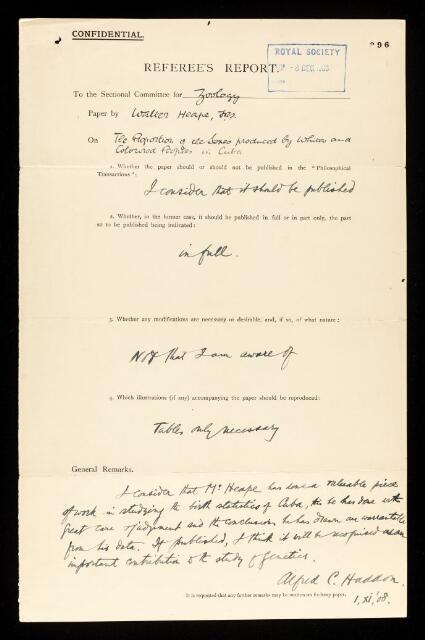 CONFIDENTIAL.
296
ROYAL SOCIETY
-8 DEC. 1908
REFEREE'S REPORT.
To the Sectional Committee for Zoology
Paper by Walter Heape, FRS.
On The Proportion of the Sexes produced by Whites and
Coloured Peoples in Cuba
1. Whether the paper should or should not be published in the "Philosophical
Transactions":
I consider that it should be published
2. Whether, in the former case, it should be published in full or in part only, the part
so to be published being indicated:
in full.
3. Whether any modifications are necessary or desirable, and, if so, of what nature:
Not that I am aware of
4. Which illustrations (if any) accompanying the paper should be reproduced:
Tables only necessary
General Remarks.
I consider that Mr Heape has done a valuable piece
of work in studying the birth statistics of Cuba, this he has done with
great care & judgment and the conclusions he has drawn are warrantable
from his data. If published, I think it will be recognised as an
important contribution to the study of genetics.
Alfred C. Haddon.
It is requested that any further remarks may be written on foolscap paper.
1. xi. 08.